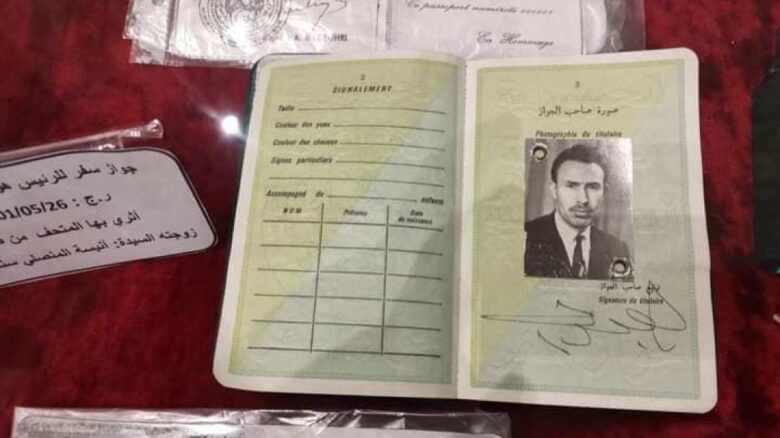 Ce passeport numéroté
En Hommage
جواز سفر للرئيس
ر.ج : 01/05/26
أثري بها المتحف من
زوجته السيدة: أنيسة المنصلي
2
SIGNALEMENT
Taille
Couleur des yeux
Couleur des cheveux
Signes particuliers
Accompagné de enfants
NOM Prénoms Date de naissance
3
صورة صاحب الجواز
Photographie du titulaire
توقيع صاحب الجواز
Signature du titulaire